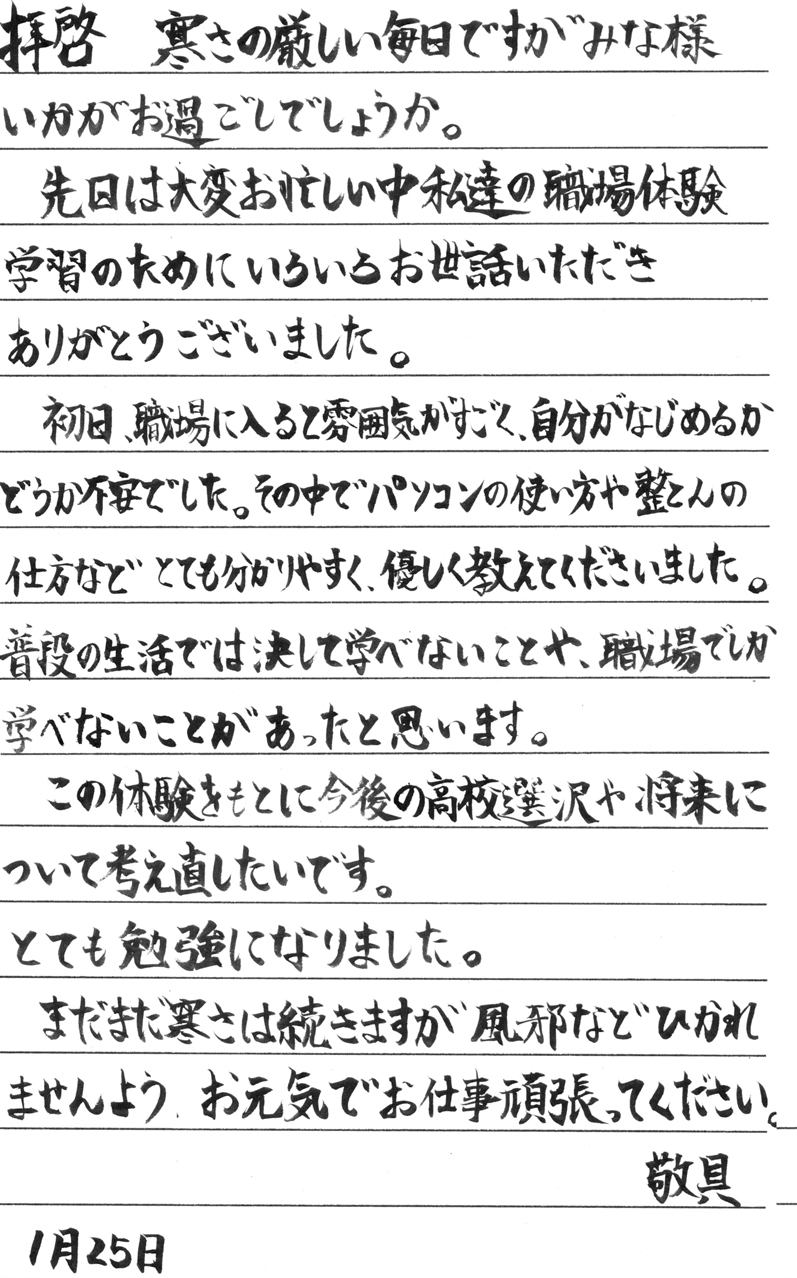 拝啓　寒さの厳しい毎日ですがみな様
いかがお過ごしでしょうか。
先日は大変お忙しい中私達の職場体験
学習のためにいろいろお世話いただき
ありがとうございました。
初日、職場に入ると雰囲気がすごく、自分がなじめるか
どうか不安でした。その中でパソコンの使い方や整とんの
仕方など とても分かりやすく、優しく教えてくださいました。
普段の生活では決して学べないことや、職場でしか
学べないことがあったと思います。
この体験をもとに今後の高校選択や将来に
ついて考え直したいです。
とても勉強になりました。
まだまだ寒さは続きますが 風邪などひかれ
ませんよう、お元気でお仕事頑張ってください。
敬具
1月25日